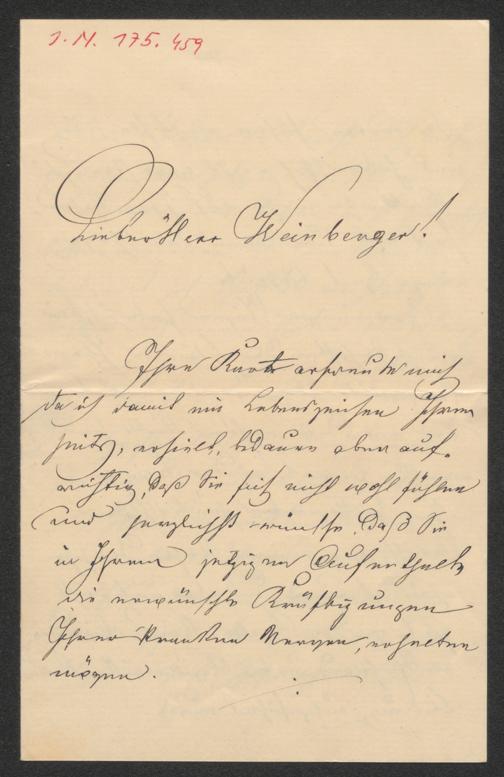 J. N. 175.459
Lieber Herr Weinberger!
Ihre Karte erfreute mich
da ich damit ein Lebenszeichen Ihrer
seits, erhielt, bedaure aber auf-
richtig, daß Sie sich nicht wohl fühlen
und herzlichst wünsche, daß Sie
in Ihrem jetzigen Aufenthalte
die erwünschte Kräftigungen
Ihrer kranken Nerven, erhalten
mögen.